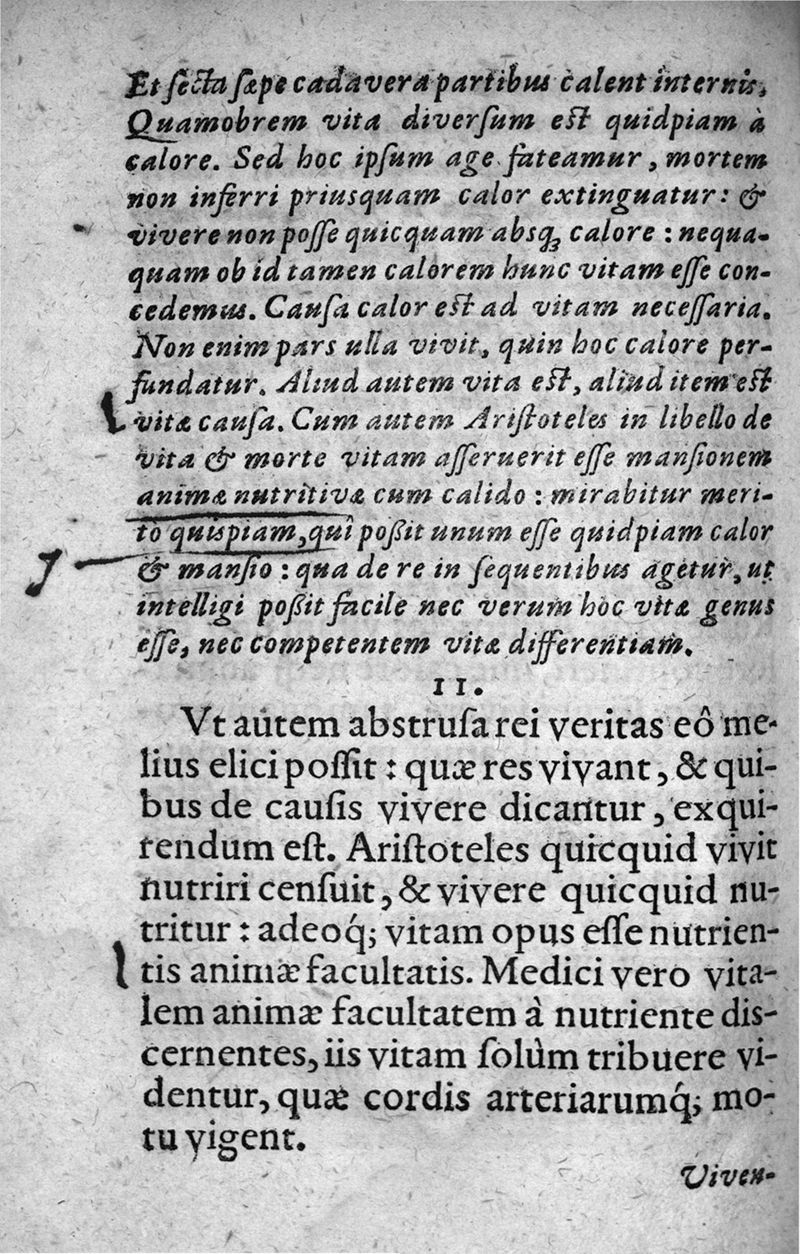 Et ſecta ſæpe cadavera partibus calent internis,
Quamobrem vita diverſum eſt quidpiam à
calore. Sed hoc ipſum age fateamur, mortem
non inferri priusquam calor extinguatur: &
vivere non poſſe quicquam absq; calore : nequa-
quam ob id tamen calorem hunc vitam eſſe con-
cedemus. Cauſa calor eſt ad vitam neceſſaria.
Non enim pars ulla vivit, quin hoc calore per-
fundatur. Aliud autem vita eſt, aliud item eſt
vitæ cauſa. Cum autem Ariſtoteles in libello de
vita & morte vitam aſſeruerit eſſe manſionem
animæ nutritivæ cum calido : mirabitur meri-
to quispiam, qui poßit unum eſſe quidpiam calor
& manſio : qua de re in ſequentibus agetur, ut
intelligi poßit facile nec verum hoc vitæ genus
eſſe, nec competentem vitæ differentiam.
II.
Vt autem abstruſa rei veritas eô me-
lius elici poſſit : quæ res vivant, & qui-
bus de cauſis vivere dicantur, exqui-
rendum eſt. Ariſtoteles quicquid vivit
nutriri cenſuit, & vivere quicquid nu-
tritur : adeoq́; vitam opus eſſe nutrien-
tis animæ facultatis. Medici vero vita-
lem animæ facultatem à nutriente dis-
cernentes, iis vitam ſolùm tribuere vi-
dentur, quæ cordis arteriarumq́; mo-
tu vigent.
Viven-